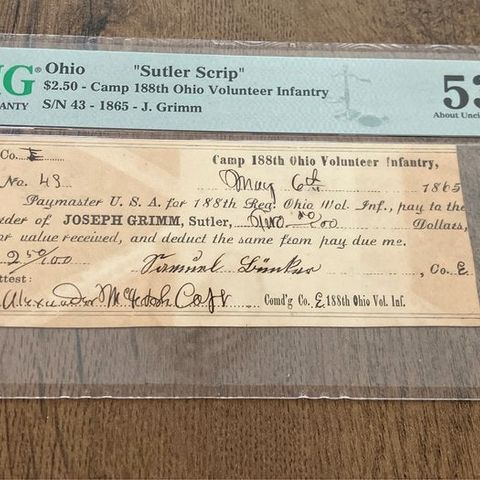 MG® Ohio "Sutler Scrip"
$2.50 - Camp 188th Ohio Volunteer Infantry
RANTY S/N 43 - 1865 - J. Grimm
53
About Unci
Co. E Camp 188th Ohio Volunteer Infantry,
No. 43 May 6th 1865
Paymaster U. S. A. for 188th Reg. Ohio Vol. Inf., pay to the
der of JOSEPH GRIMM, Sutler, Two 50/100 Dollars,
or value received, and deduct the same from pay due me.
2 50/100 Samuel , Co. E
ttest:
Alexander Capt Comd'g Co. E 188th Ohio Vol. Inf.